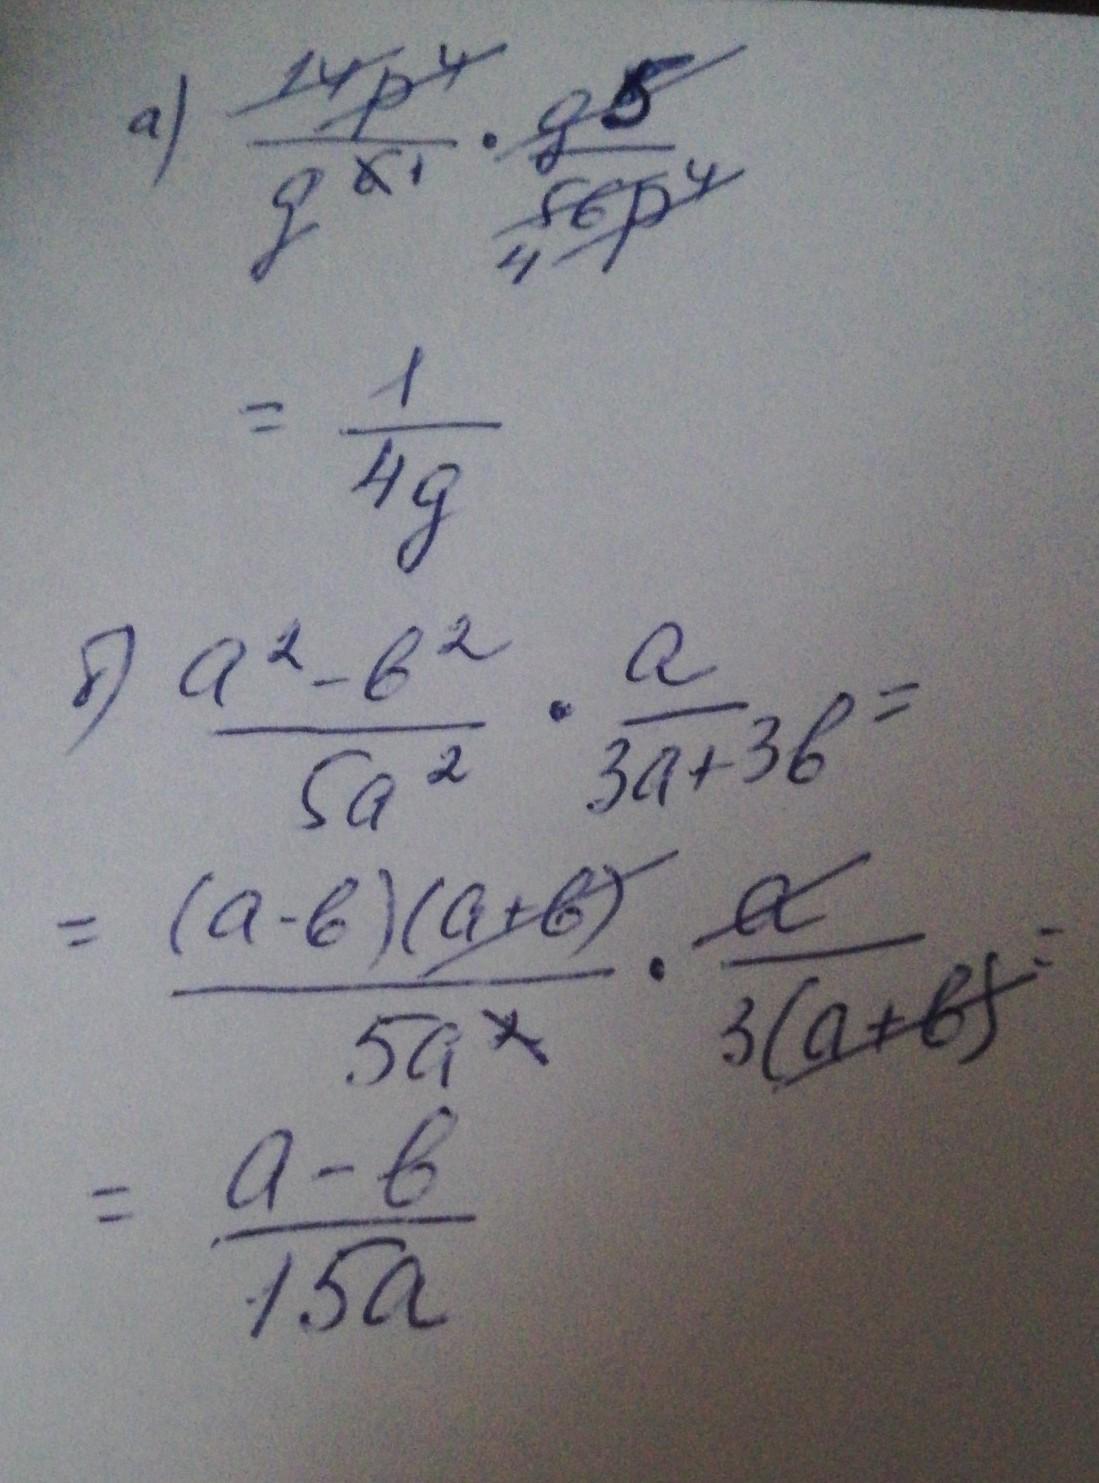 а) 14p⁴/g⁶¹ · g⁵/56p⁴ 4
= 1/4g
б) (a² - в²)/5a² · a/(3a+3в) =
= (a-в)(a+в)/5a² · a/3(a+в) =
= (a - в)/15a